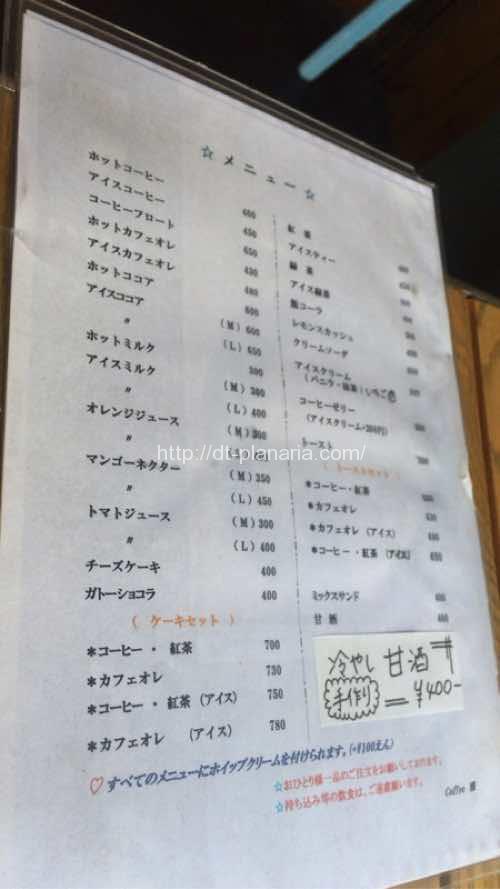 ☆メニュー☆
ホットコーヒー
アイスコーヒー
コーヒーフロート
ホットカフェオレ
アイスカフェオレ
ホットココア
アイスココア (M) 600
〃 (L) 650
ホットミルク
アイスミルク (M)
〃 (L) 400
オレンジジュース (M)
〃
マンゴーネクター (M) 350
〃 (L) 450
トマトジュース (M) 300
〃 (L) 400
チーズケーキ 400
ガトーショコラ 400
( ケーキセット )
*コーヒー・紅茶 700
*カフェオレ 730
*コーヒー・紅茶 (アイス) 750
*カフェオレ (アイス) 780
紅茶
アイスティー
緑茶
アイス緑茶
瓶コーラ
レモンスカッシュ
クリームソーダ
アイスクリーム
(バニラ・抹茶)いちご
コーヒーゼリー
(アイスクリーム+200円)
トースト
( トーストセット )
*コーヒー・紅茶
*カフェオレ
*カフェオレ (アイス)
*コーヒー・紅茶 (アイス)
ミックスサンド
甘酒
冷やし甘酒
手作り ¥400-
♡すべてのメニューにホイップクリームを付けられます。(+¥100えん)
☆おひとり様一品のご注文をお願いしております。
☆持ち込み等の飲食は、ご遠慮願います。
Coffee
http://dt-planaria.com/